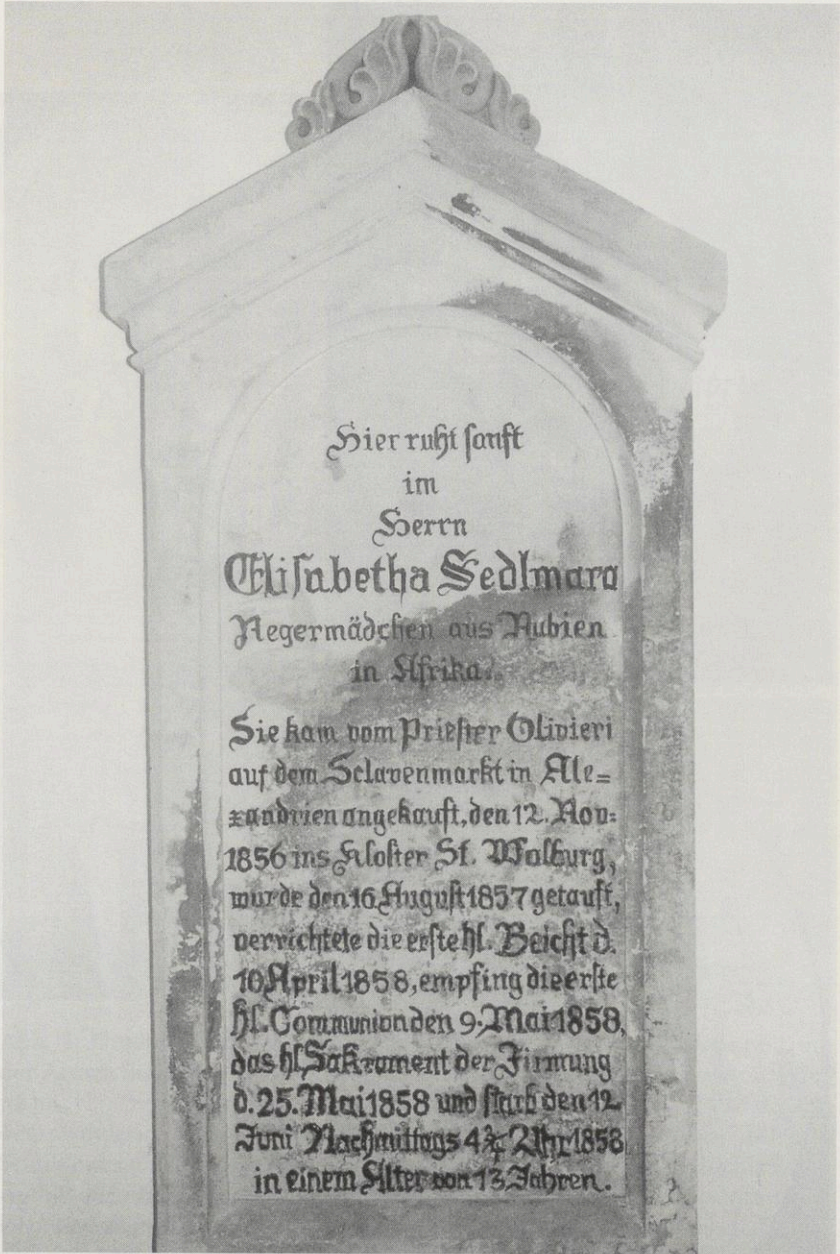 Hier ruht sanft
im
Herrn
Elisabetha Sedlmara
Negermädchen aus Nubien
in Afrika.
Sie kam vom Priester Olivieri
auf dem Sclavenmarkt in Ale=
xandrien angekauft, den 12. Nov:
1856 ins Kloster St. Walburg,
wurde den 16 August 1857 getauft,
verrichtete die erste hl. Beicht d.
10 April 1858, empfing die erste
hl. Communion den 9. Mai 1858,
das hl. Sakrament der Firmung
d. 25. Mai 1858 und starb den 12.
Juni Nachmittags 4¾ Uhr 1858
in einem Alter von 13 Jahren.